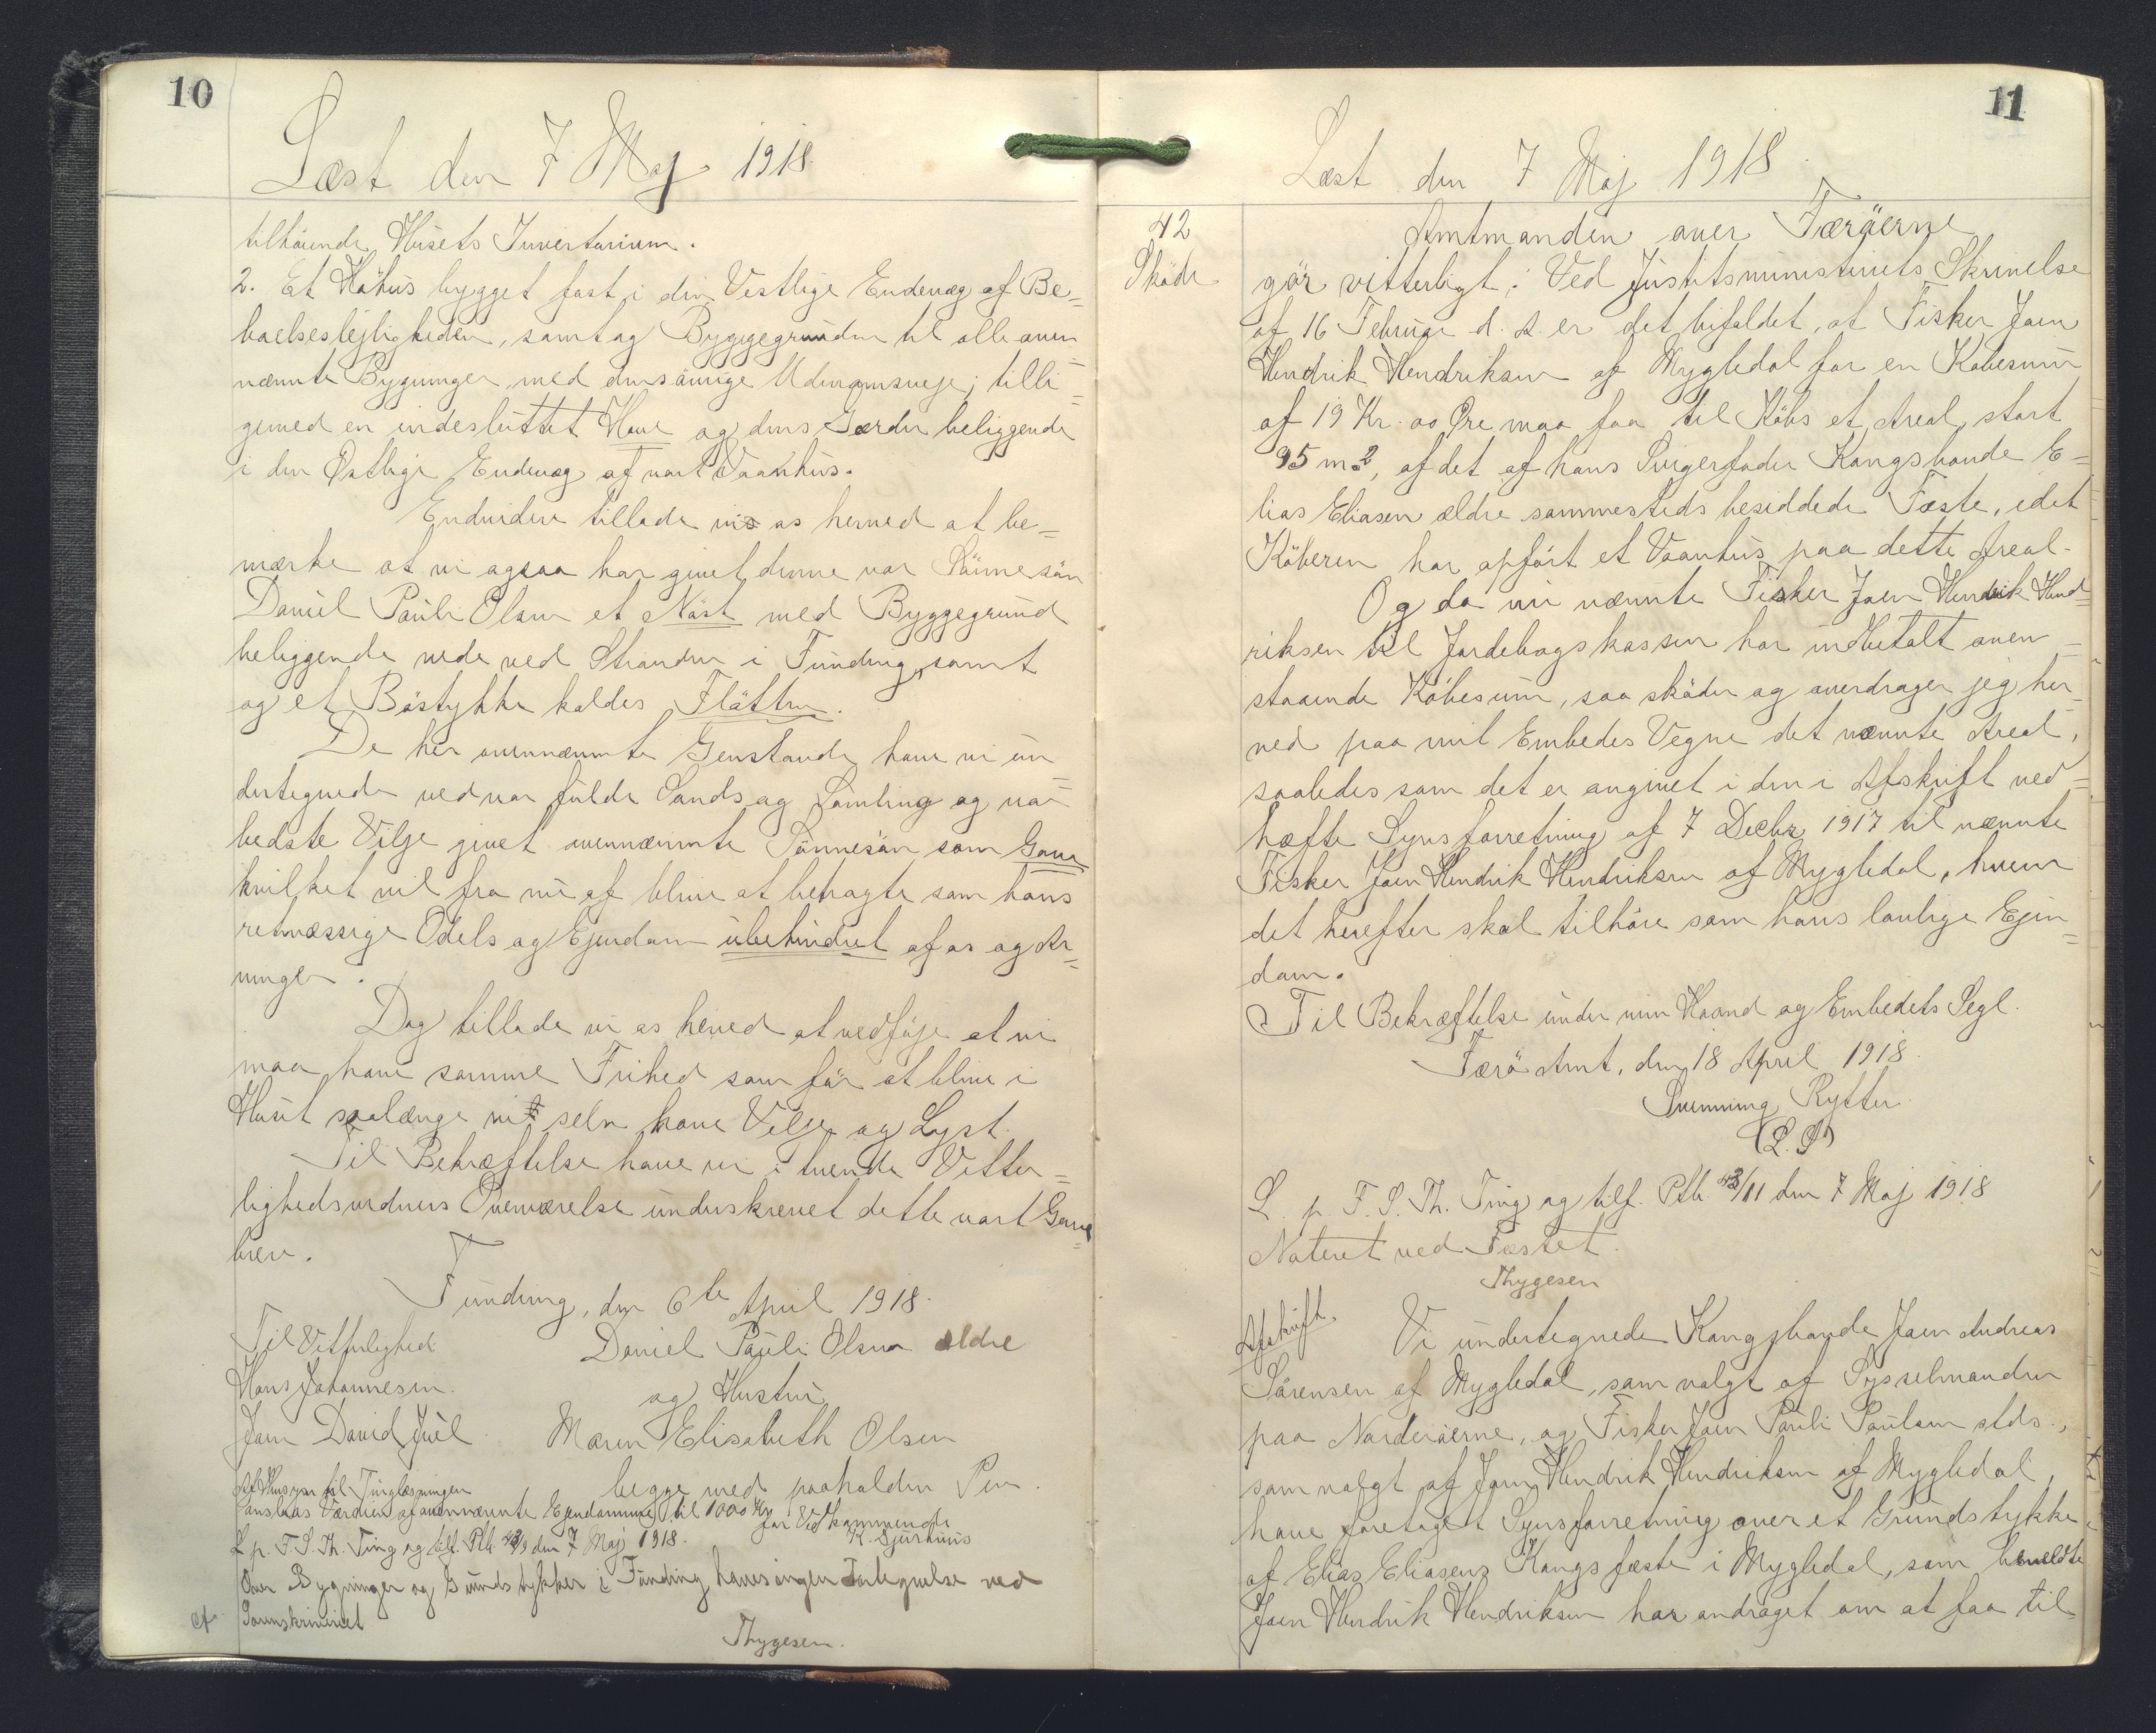 10
Læst den 7 Maj 1918.
tilhörende Husets Inventarium.
2. Et Höhus bygget fast i den Vestlige Endevæg af Be=
boelseslejligheden, samt og Byggegrunden til alle oven
nævnte Bygninger, med dersamige Udenomsveje; tilli=
gemed en indesluttet Have og dens Gærder beliggende
i den Østlige Endevæg af vort Vaanhus.
Endvidere tillade vi os herved at be=
mærke at vi ogsaa har givet denne vor Sönnesön
Daniel Pauli Olsen et Nöst med Byggegrund
beliggende nede ved Stranden i Funding, samt
og et Böstykke kaldes Flötten.
De her ovennævnte Genstande have vi un=
dertegnede ved vor fulde Sands og Samling og vor
bedste Vilje givet ovennævnte Sönnesön som Gave
hvilket vil fra nu af blive at betragte som hans
retmæssige Odels og Ejendom ubehindret af os og Ar=
vinger.
Dog tillade vi os herved at vedföje at vi
maa have samme Frihed som för at blive i
Huset saalænge vi selv have Vilje og Lyst.
Til Bekræftelse have vi i tvende Vitter=
lighedsvidners Overværelse underskrevet dette vort Gave=
brev.
Funding, den 6te April 1918.
Til Vitterlighed Daniel Pauli Olsen ældre
Hans Johannesen. og Hustru
Joen David Juel Maren Elisabeth Olsen
Af Hensyn til Tinglæsningen begge med paaholden Pen.
anslaas Værdien af ovennævnte Ejendomme til 1000 Kr. for Vedkommende
K. Djurhuus
L. p. F. S. Th. Ting og tilf. Ptb. 43/9 den 7 Maj 1918.
Over Bygninger og Grundstykker i Funding haves ingen Fortegnelse ved
Sorenskriveriet
cf.
Thygesen.
11
Læst den 7 Maj 1918.
42
Sköde
Amtmanden over Færöerne
gör vitterligt: Ved Justitsministeriets Skrivelse
af 16 Februar d. A. er det bifaldet, at Fisker Joen
Hendrik Hendriksen af Mygledal for en Köbesum
af 19 Kr. 00 Øre maa faa til Köbs et Areal, stort
95 m2, af det af hans Svigerfader Kongsbonde E=
lias Eliasen ældre sammesteds besiddede Fæste, idet
Köberen har opfört et Vaanhus paa dette Areal.
Og da nu nævnte Fisker Joen Hendrik Hend=
riksen til Jordebogskassen har indbetalt oven=
staaende Köbesum, saa sköder og overdrager jeg her=
ved paa mit Embedes Vegne det nævnte Areal,
saaledes som det er angivet i den i Afskrift ved=
hæfte Synsforretning af 7 Decbr. 1917 til nævnte
Fisker Joen Hendrik Hendriksen af Mygledal, hvem
det herefter skal tilhöre som hans lovlige Ejen=
dom.
Til Bekræftelse under min Haand og Embedets Segl.
Færö Amt, den 18 April 1918.
Svenning Rytter.
(L.S)
L. p. F. S. Th. Ting og tilf. Ptb. 43/11 den 7 Maj 1918
Noteret ved Fæstet.
Thygesen
Afskrift. Vi undertegnede Kongsbonde Joen Andreas
Sörensen af Mygledal, som valgt af Sysselmanden
paa Norderöerne, og Fisker Joen Pauli Poulsen stds.,
som valgt af Joen Hendrik Hendriksen af Mygledal
have foretaget Synsforretning over et Grundstykke
af Elias Eliasens Kongsfæste i Mygledal, som bemeldte
Joen Hendrik Hendriksen har andraget om at faa til